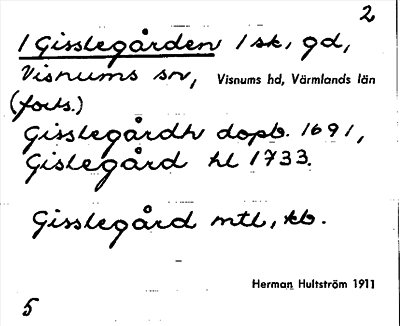 2
1 Gisslegården 1 sk, gd,
Visnums sn, Visnums hd, Värmlands län
(forts.)
Gisslegårdh dopb. 1691,
Gislegård hl 1733.
Gisslegård mtl, kb.
Herman Hultström 1911
5